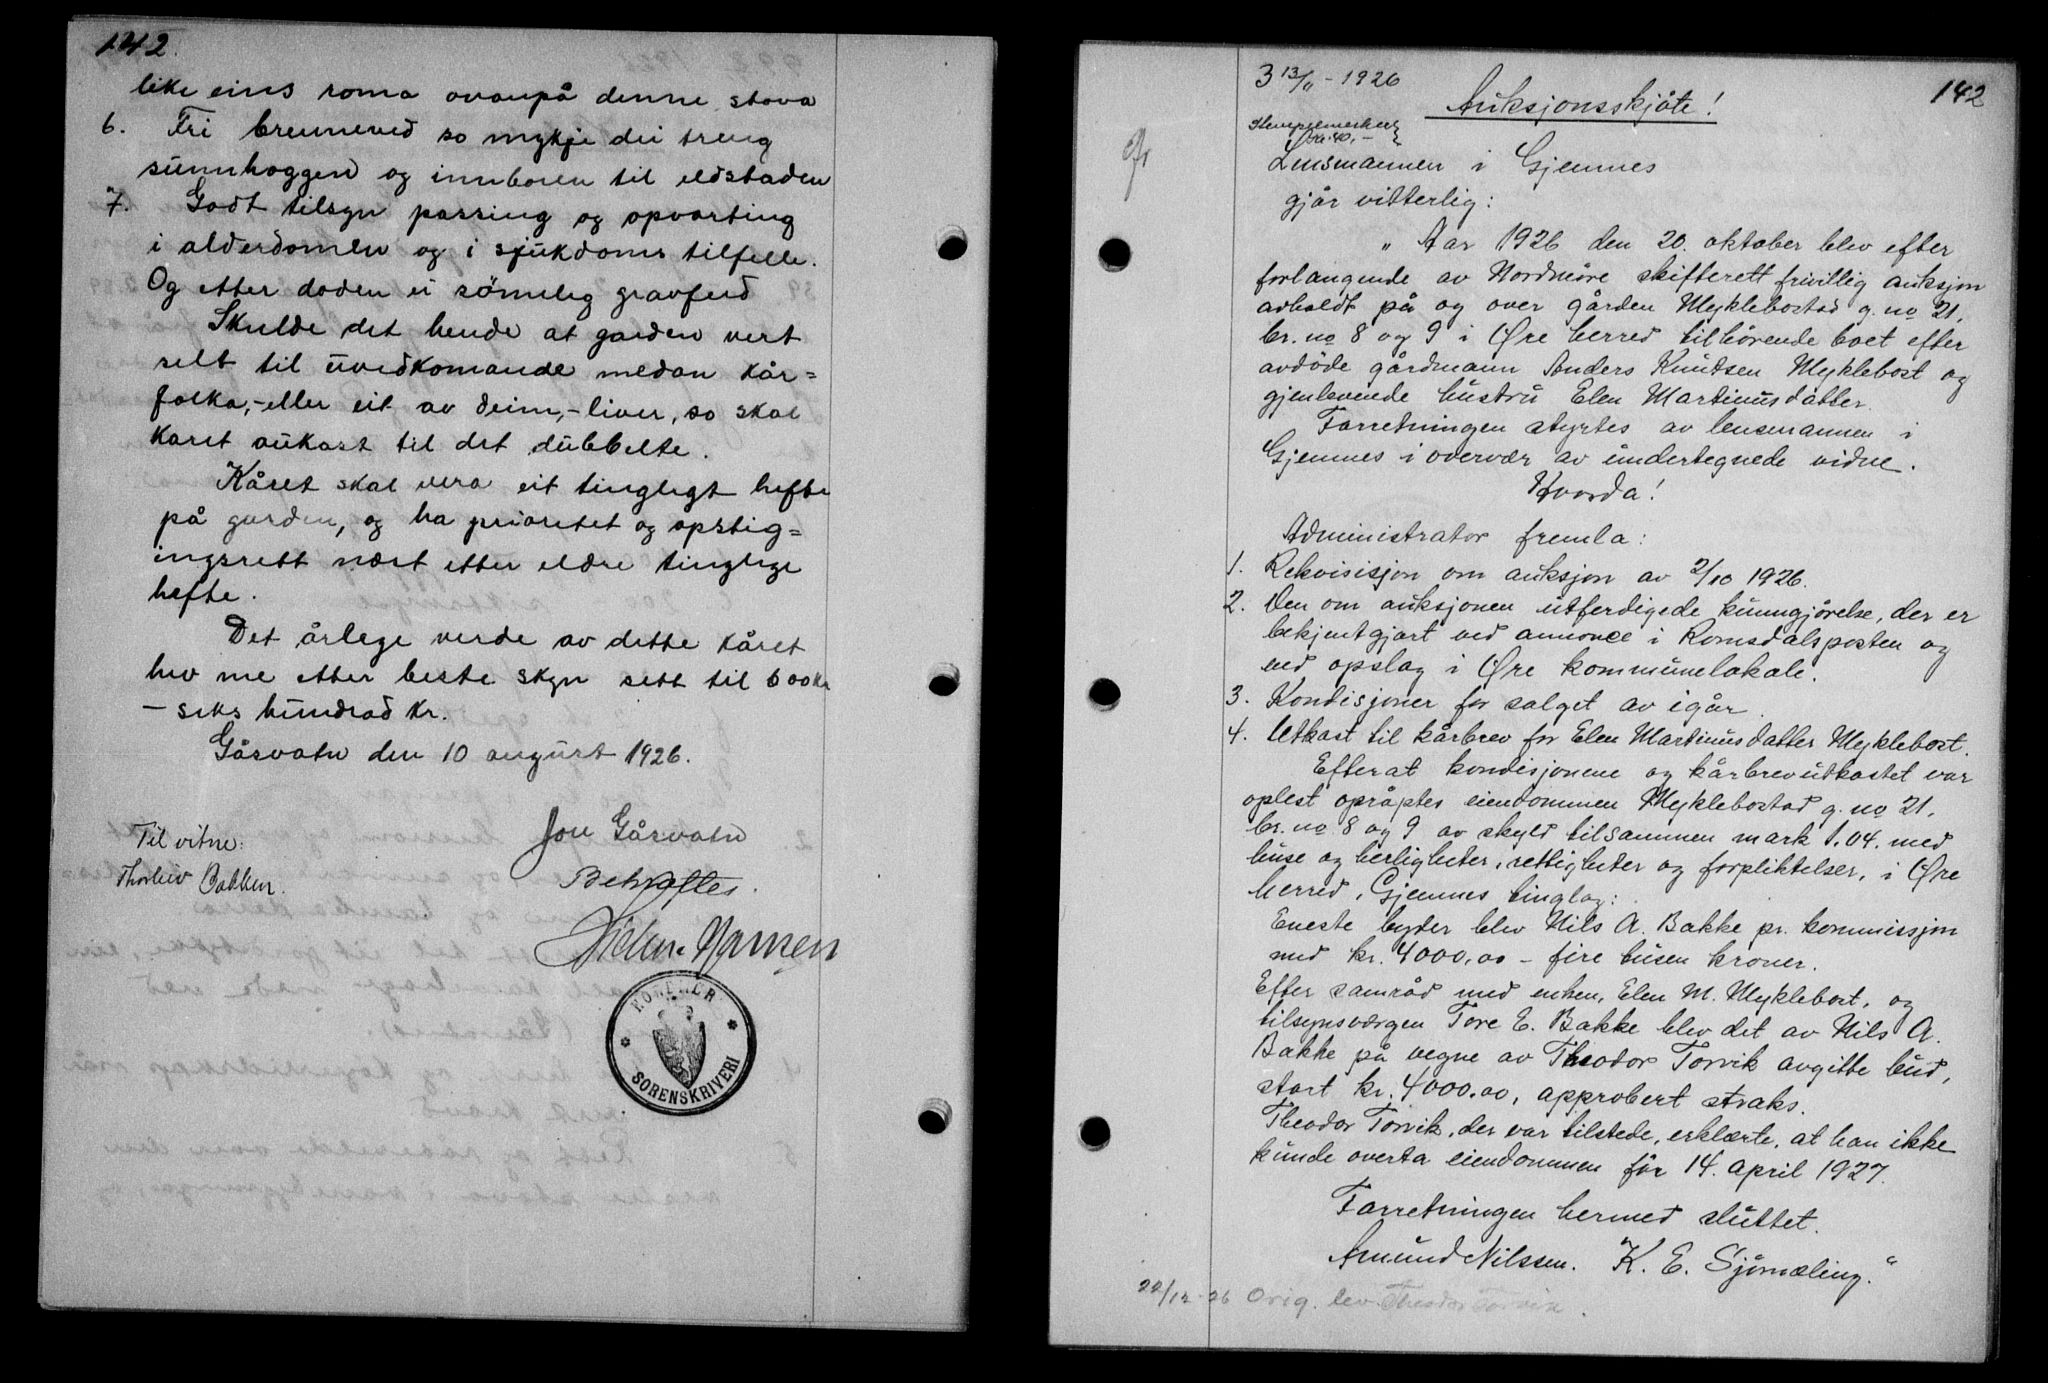 142.
like eins roma ovanpå denne stova
6. Fri brenneved so mykje dei treng
sunnhoggen og innboren til eldstaden
7. Godt tilsyn passing og opvarting
i alderdomen og i sjukdoms tilfelle.
Og etter døden ei sömeleg gravferd
Skulde det hende at garden vert
selt til uvedkomande medan kår=
folka,-eller eit av deim,-liver, so skal
karet aukast til det dubbelte.
Kåret skal vera eit tinglegt hefte
på garden, og ha prioritet og opstig=
ingsrett næst etter eldre tinglege
hefte.
Det årlege verde av dette kåret
hev me etter beste skyn sett til 600 kr
- seks hundrad kr.
Gåsvatn den 10 august 1926.
Jon Gåsvatn
Til vitne:
Thorleiv Bakken.
Bekræftes.
NORDMØR
SORENSKRIVERI
142
3 13/11 - 1926
Auksjonsskjöte!
Stempelmerker
kr. 40,-
Lensmannen i Gjemnes
gjör vitterlig:
„ Aar 1926 den 20. oktober blev efter
forlangende av Nordmöre skifterett frivillig auksjon
avholdt på og over gården Myklebostad g. no 21,
br. no 8 og 9 i Øre herred tilhörende boet efter
avdöde gårdmann Anders Knutsen Myklebost og
gjenlevende hustru Elen Martinusdatter.
Forretningen styrtes av lensmannen i
Gjemnes i overvær av undertegnede vidne.
Hvorda!
Administrator fremla:
1. Rekvisisjon om auksjon av 2/10 1926.
2. Den om auksjonen utferdigede kunngjörelse, der er
bekjentgjort ved annonce i Romsdalsposten og
ved opslag i Øre kommunelokale.
3. Kondisjoner for salget av igår.
4. Utkast til kårbrev for Elen Martinusdatter Myklebost.
Efterat kondisjonene og kårbrevutkastet var
oplest opråptes eiendommen Myklebostad g. no 21,
br. no 8 og 9 av skyld tilsammen mark 1.04. med
huse og herligheter, rettigheter og forpliktelser, i Øre
herred, Gjemnes tinglag:
Eneste byder blev Nils A. Bakke pr. kommissjon
med kr. 4000,00 - fire tusen kroner.
Efter samråd med enken, Elen M. Myklebost, og
tilsynsværgen Tore E. Bakke blev det av Nils A.
Bakke på vegne av Theodor Torvik avgitte bud,
stort kr. 4000.00, approbert straks.
Theodor Torvik, der var tilstede, erklærte, at han ikke
kunde overta eiendommen för 14. april 1927.
Forretningen hermed sluttet.
Amund Nilssen. K. E. Sjömæling."
22/12-26 Orig. lev. Theodor Torvik.